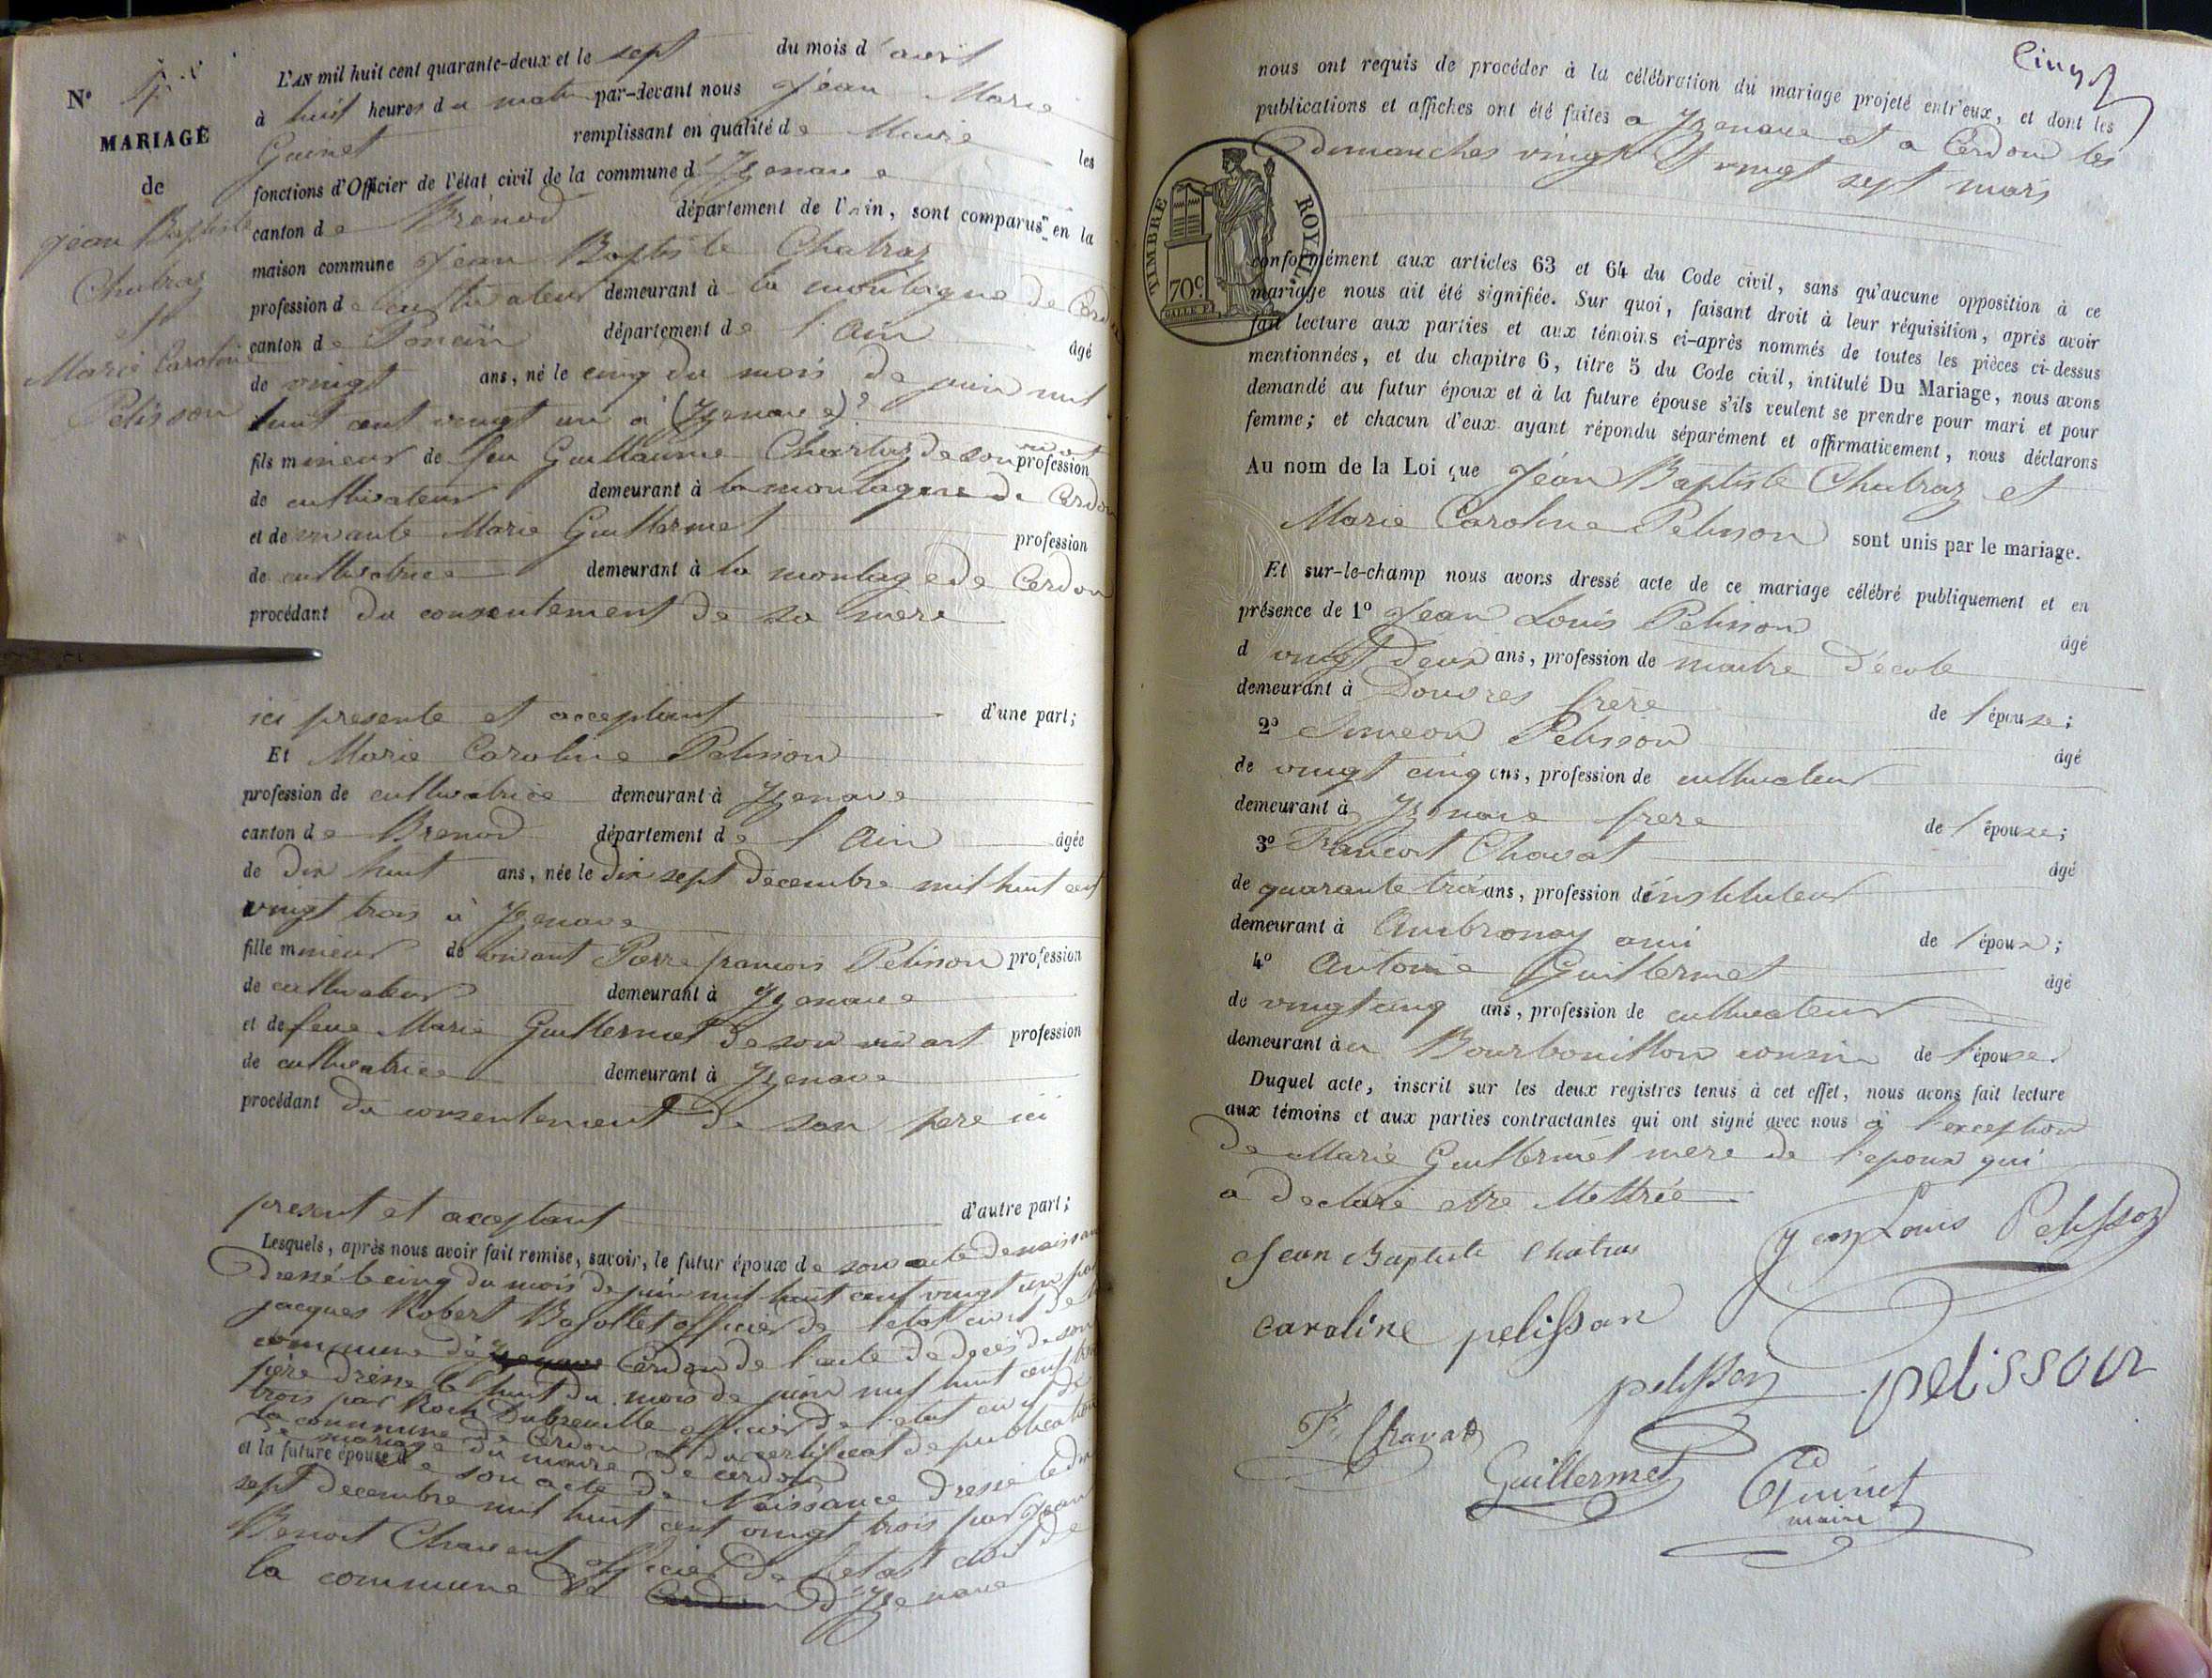 N° 4
MARIAGE
de
Jean Baptiste
Chatraz
et
Marie Caroline
Pelisson
L'AN mil huit cent quarante-deux et le sept du mois d'avril
à huit heures du matin par-devant nous Jean Marie
Guinet remplissant en qualité de Maire les
fonctions d'Officier de l'état civil de la commune d'Izenave
canton de Brénod département de l'Ain, sont comparus en la
maison commune Jean Baptiste Chatraz
profession de cultivateur demeurant à la montagne de Cerdon
canton de Poncin département de l'Ain âgé
de vingt ans, né le cinq du mois de juin mil
huit cent vingt un à (Izenave)
fils mineur de feu Guillaume Chatraz de son vivant profession
de cultivateur demeurant à la montagne de Cerdon
et de vivante Marie Guillermet profession
de cultivatrice demeurant à la montagne de Cerdon
procédant du consentement de sa mere
ici presente et acceptant d'une part;
Et Marie Caroline Pelisson
profession de cultivatrice demeurant à Izenave
canton de Brenod département de l'Ain âgée
de dix huit ans, née le dix sept decembre mil huit cent
vingt trois à Izenave
fille mineur de vivant Pierre françois Pelisson profession
de cultivateur demeurant à Izenave
et de feue Marie Guillermet de son vivant profession
de cultivatrice demeurant à Izenave
procédant du consentement de son pere ici
present et acceptant d'autre part;
Lesquels, après nous avoir fait remise, savoir, le futur époux de son acte de naissance
dressé le cinq du mois de juin mil huit cent vingt un par
jacques Robert Bajollet officier de l'etat civil de la
commune de Cerdon de l'acte de deces de son
père dressé le huit du mois de juin mil huit cent
trois par Roch Dubreuille officier de l'etat civil de
la commune de Cerdon et du certificat de publication
de mariage du maire de cerdon
et la future épouse de son acte de Naissance dressé le dix
sept decembre mil huit cent vingt trois par Jean
Benoit Chavent officier de l'etat civil de
la commune d'Izenave
Cinq
nous ont requis de procéder à la célébration du mariage projeté entr'eux, et dont les
publications et affiches ont été faites a Izenave et a Cerdon les
dimanches vingt et vingt sept mars
TIMBRE ROYAL
70c.
conformément aux articles 63 et 64 du Code civil, sans qu'aucune opposition à ce
mariage nous ait été signifiée. Sur quoi, faisant droit à leur réquisition, après avoir
fait lecture aux parties et aux témoins ci-après nommés de toutes les pièces ci-dessus
mentionnées, et du chapitre 6, titre 5 du Code civil, intitulé Du Mariage, nous avons
demandé au futur époux et à la future épouse s'ils veulent se prendre pour mari et pour
femme; et chacun d'eux ayant répondu séparément et affirmativement, nous déclarons
Au nom de la Loi que Jéan Baptiste Chatraz et
Marie Caroline Pelisson sont unis par le mariage.
Et sur-le-champ nous avons dressé acte de ce mariage célébré publiquement et en
présence de 1° Jean Louis Pelisson âgé
d vingt deux ans, profession de maitre d'école
demeurant à Douvres frere de l'épouse;
2° Simeon Pelisson âgé
de vingt cinq ans, profession de cultivateur
demeurant à Izenave frere de l'épouse;
3° Francoit Chavat âgé
de quarante trois ans, profession d'instituteur
demeurant à Ambronay ami de l'époux;
4° Antoine Guillermet âgé
de vingt cinq ans, profession de cultivateur
demeurant à a Bourbouillon cousin de l'épouse.
Duquel acte, inscrit sur les deux registres tenus à cet effet, nous avons fait lecture
aux témoins et aux parties contractantes qui ont signé avec nous a l'exception
de Marie Guillermet mere de l'epoux qui
a declaré etre illettrée
Jean Baptiste Chatras
Jean Louis Pelisson
caroline pelissan
pelisson
pelisson
F. Chavat
Guillermet
Guinet
maire